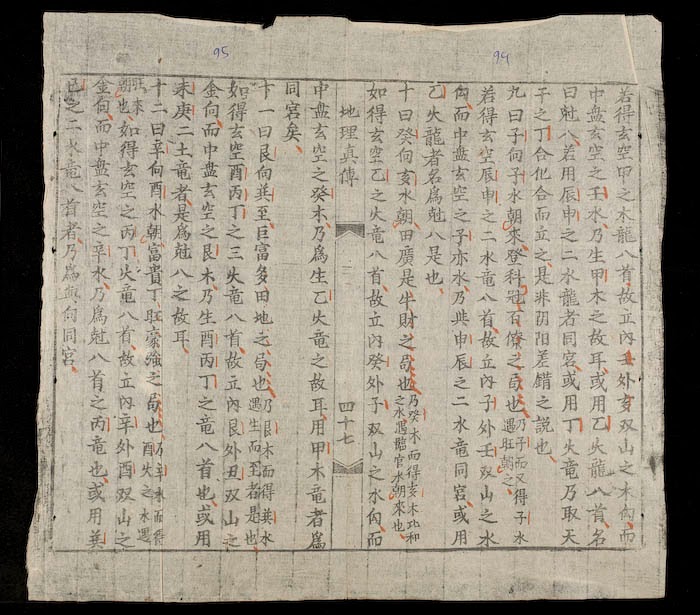 94
若得玄空甲之木龍八首故立內壬外亥双山之水向而
中盘玄空之壬水乃生甲木之故耳或用乙火龍八首名
曰尅八若用辰申之二水龍者同宮或用丁火竜乃取天
干之丁合化合而立之是非阴阳差錯之說也
九曰子向子水朝來登科冠百僚之局也乃子而又得子水遇旺朝之
若得玄空辰申之二水竜八首故立內子外壬双山之水
向而中盘玄空之子亦水乃與申辰之二水竜同宮或用
乙火龍者名爲尅八是也
十曰癸向亥水朝田廣是牛財之局也乃癸木而得亥木比和之水遇臨官水朝來也
如得玄空乙之火竜八首故立內癸外子双山之水向而
95
地理真傳
四十七
中盘玄空之癸木乃爲生乙火竜之故耳用甲木竜者爲
同宮矣
十一曰艮向巽至巨富多田地之局也乃艮木而得巽水遇生而王者是也
如得玄空酉丙丁之三火竜八首故立內艮外丑双山之
金向而中盘玄空之艮木乃生酉丙丁之竜八首也或用
未庚二土竜者是爲尅八之故耳
十二曰辛向酉水朝富貴丁旺豪強之局也乃辛水而得酉火之水遇旺來朝也如得玄空之丙丁火竜八首故立內辛外酉双山之
金向而中盘玄空之辛水乃爲尅八首之丙竜也或用巽
巳之二水竜八首者乃爲與向同宮